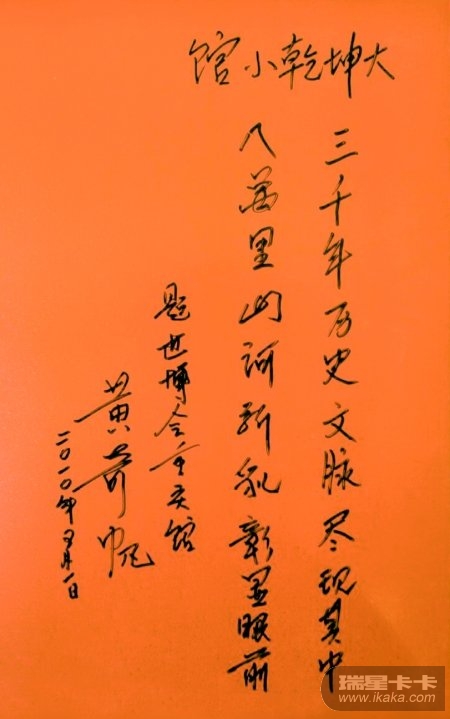 馆小乾坤大
三千年历史文脉尽现其中
八萬里山河新貌彰显眼前
题世博会重庆馆
黄奇帆
二〇一〇年五月一日
瑞星卡卡
www.ikaka.com